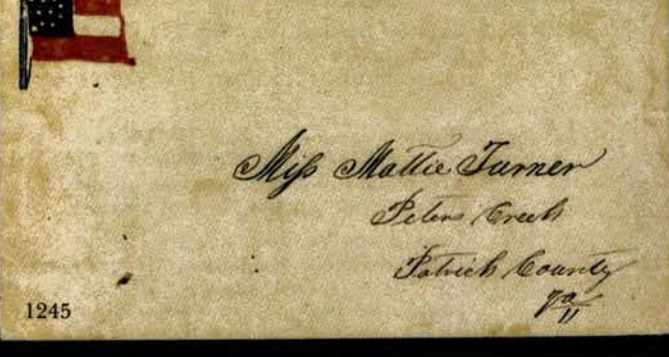 Miss Mattie Turner
Peters Creek
Patrick County
Va
1245